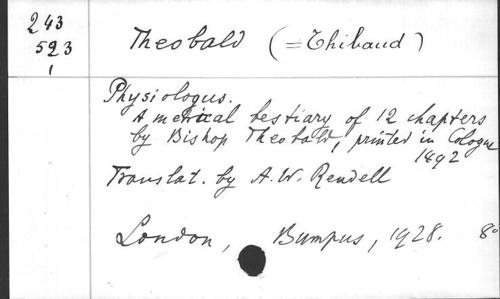 243
523
1
Theobald (=Thibaud)
Physiologus.
A metrical bestiary of 12 chapters
by Bishop Theobald, printed in Cologne
1492
Translat. by A.W. Rendell
London, Bumpus, 1928. 8°